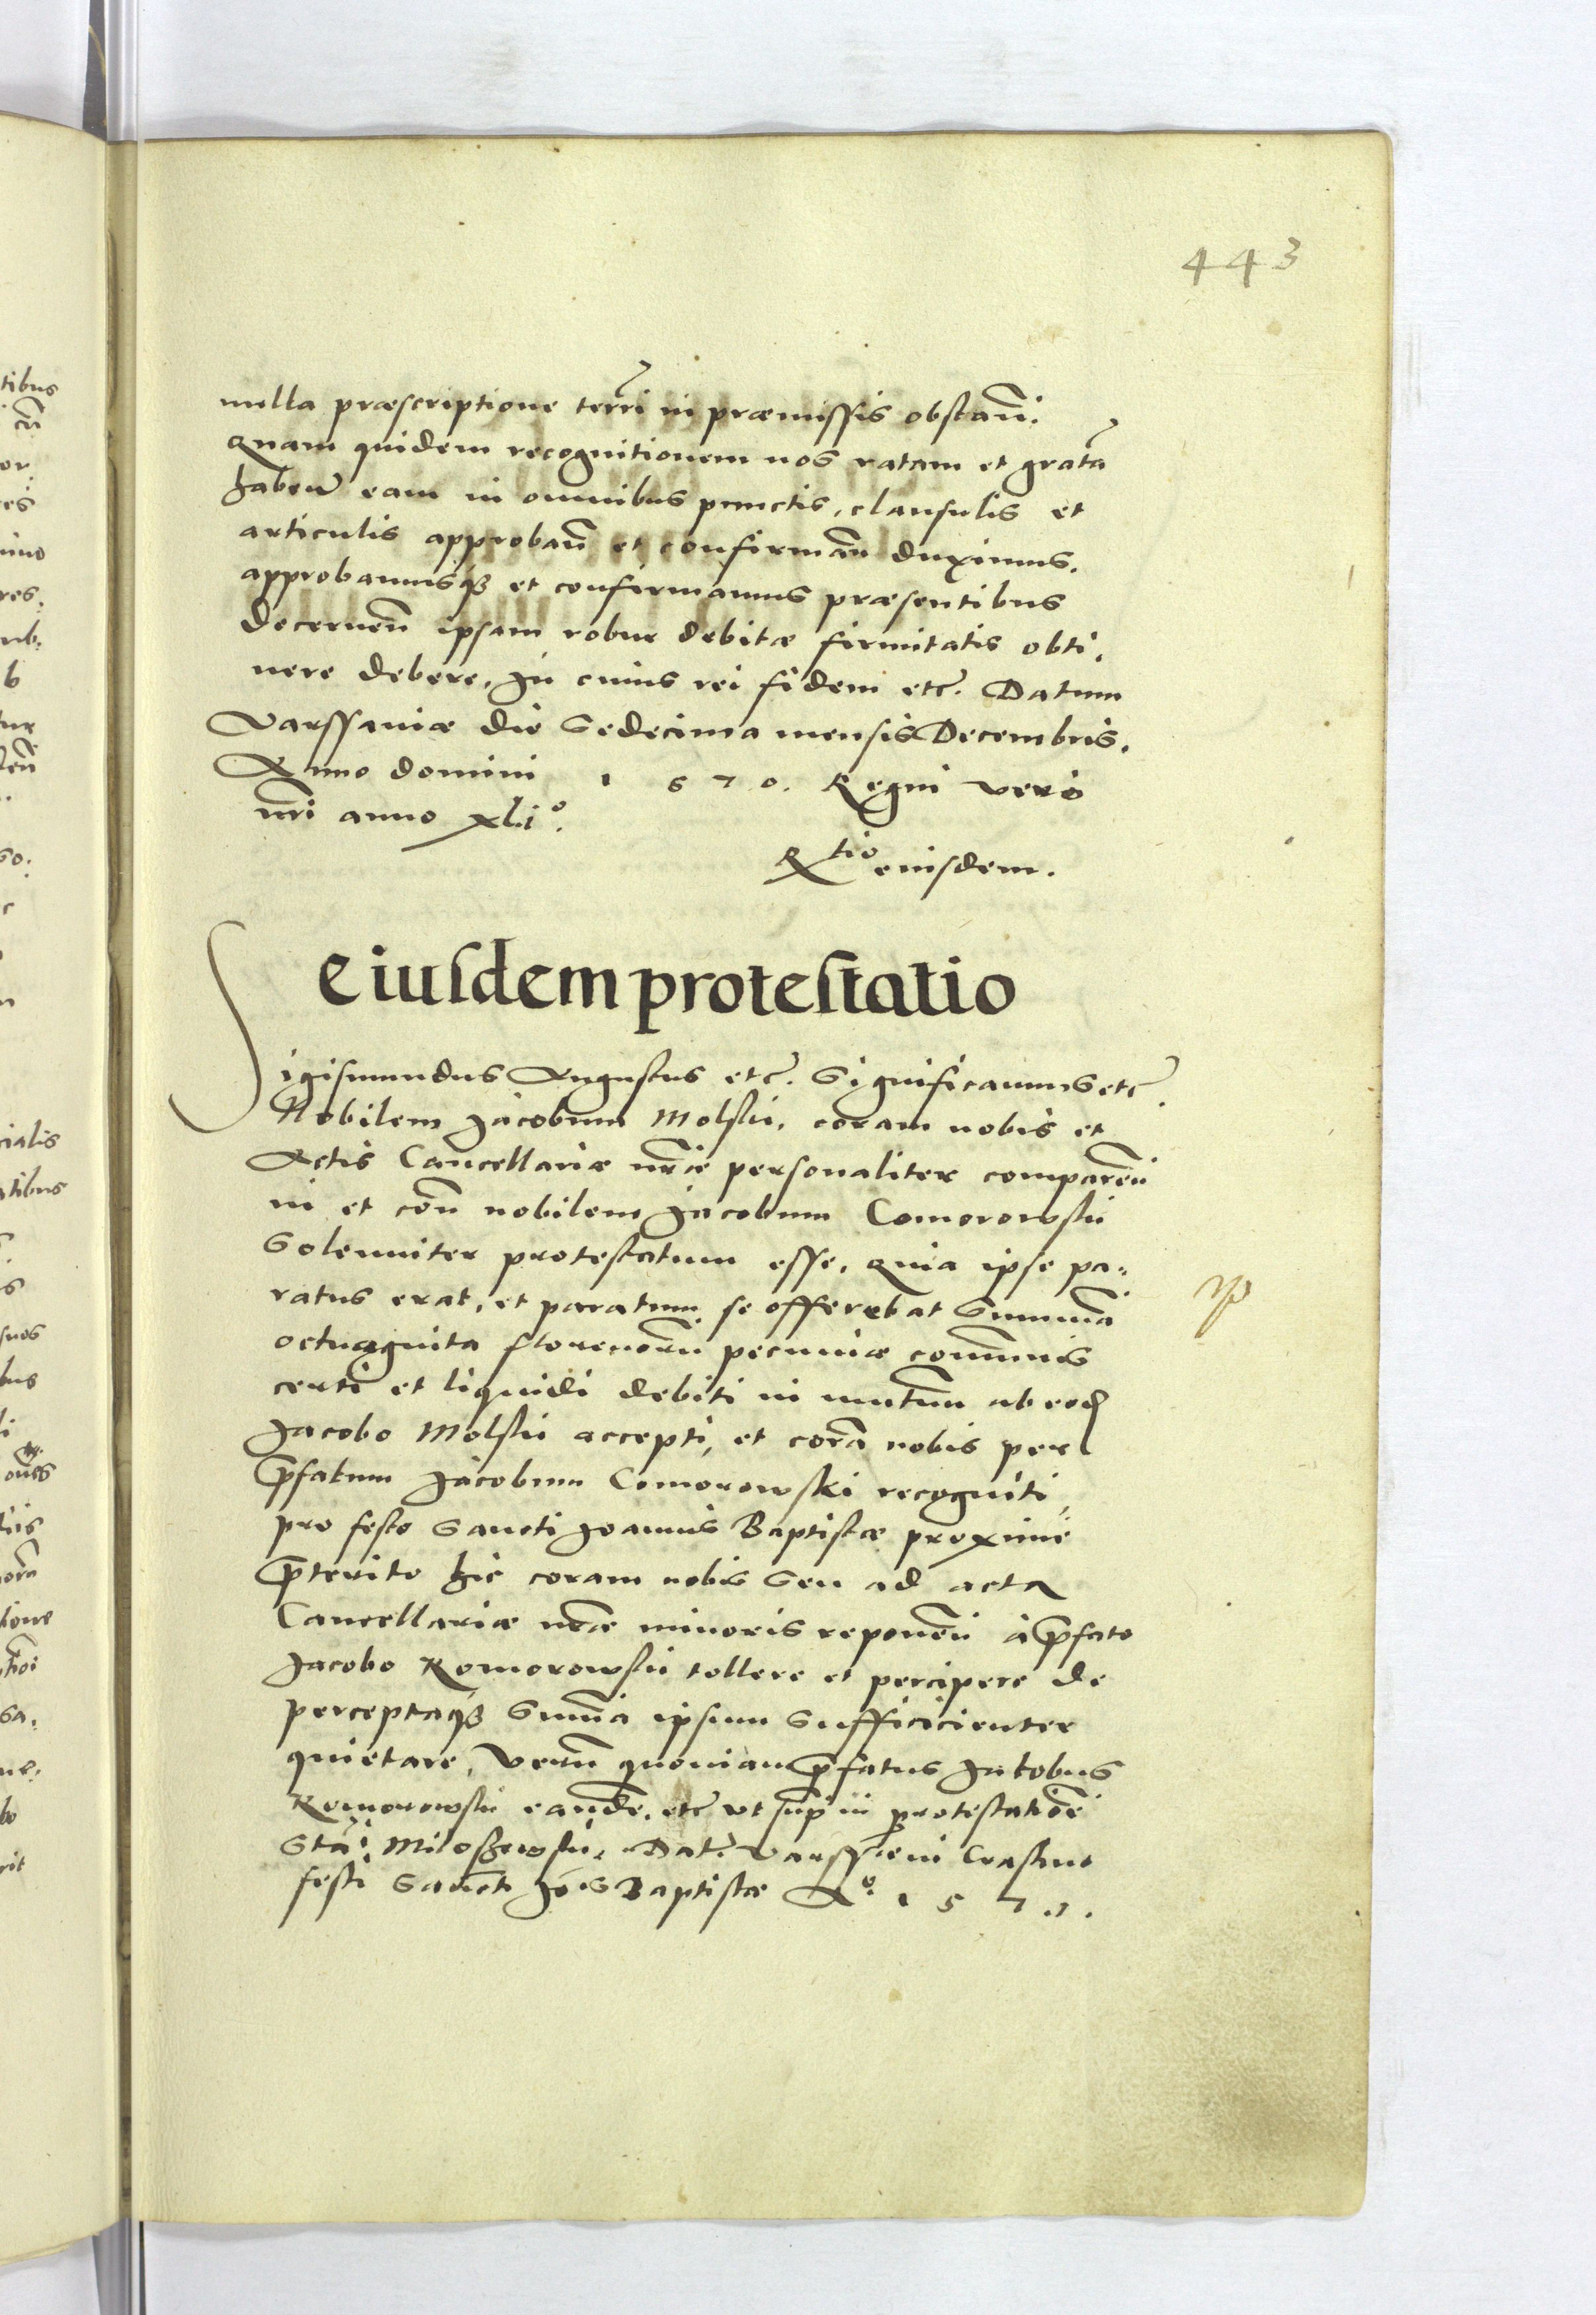 443
nulla præscriptione terrī in præmissis obstan̄.
quam quidem recognitionem nos ratam et gratā
haben̄ eam in omnibus punctis, clausulis et
articulis approban̄ et confirman̄ duximus.
approbamusq3 et confirmamus præsentibus
decernen̄ ipsam robur debitæ firmitatis obti,
nere debere, In cuius rei fidem etc̄. Datum
Varssaviæ die Sedecima mensis Decembris,
Anno domini 1570. Regni vero
nr̄i anno xli°.
Rtio eiusdem.
eiusdem protestatio
Sigismundus Augustus etc̄. Significamus etc̄.
Nobilem Jacobum Molski, coram nobis et
Actis Cancellariæ nr̄æ personaliter comparen̄
in et con̄ nobilem Jacobum Comorowski
Solenniter protestatum esse, quia ipse pa-
ratus erat, et paratum se offerebat Summā
octuaginta florenorū pecuniæ com̄unis
certi et liquidi debiti in mutuū ab eod
Jacobo Molski accepti, et corā nobis per
p̄fatum Jacobum Comorowski recogniti,
pro festo Sancti Joannis Baptistæ proxime
p̄terito hic coram nobis Seu ad acta
Cancellariæ nr̄æ minoris reponen̄ à p̄fato
Jacobo Komorowski tollere et percipere de
perceptaq3 Sum̄a ipsum Sufficicienter
quietare, Verū quoniam p̄fatus Jakobus
Komorowski eandē, etc̄ vt sup̄ in protestatiōe
Stāi Miloszewski, Dat. Varssæ in Crastino
festi Sancti Jōis Baptistæ A°. 1571.